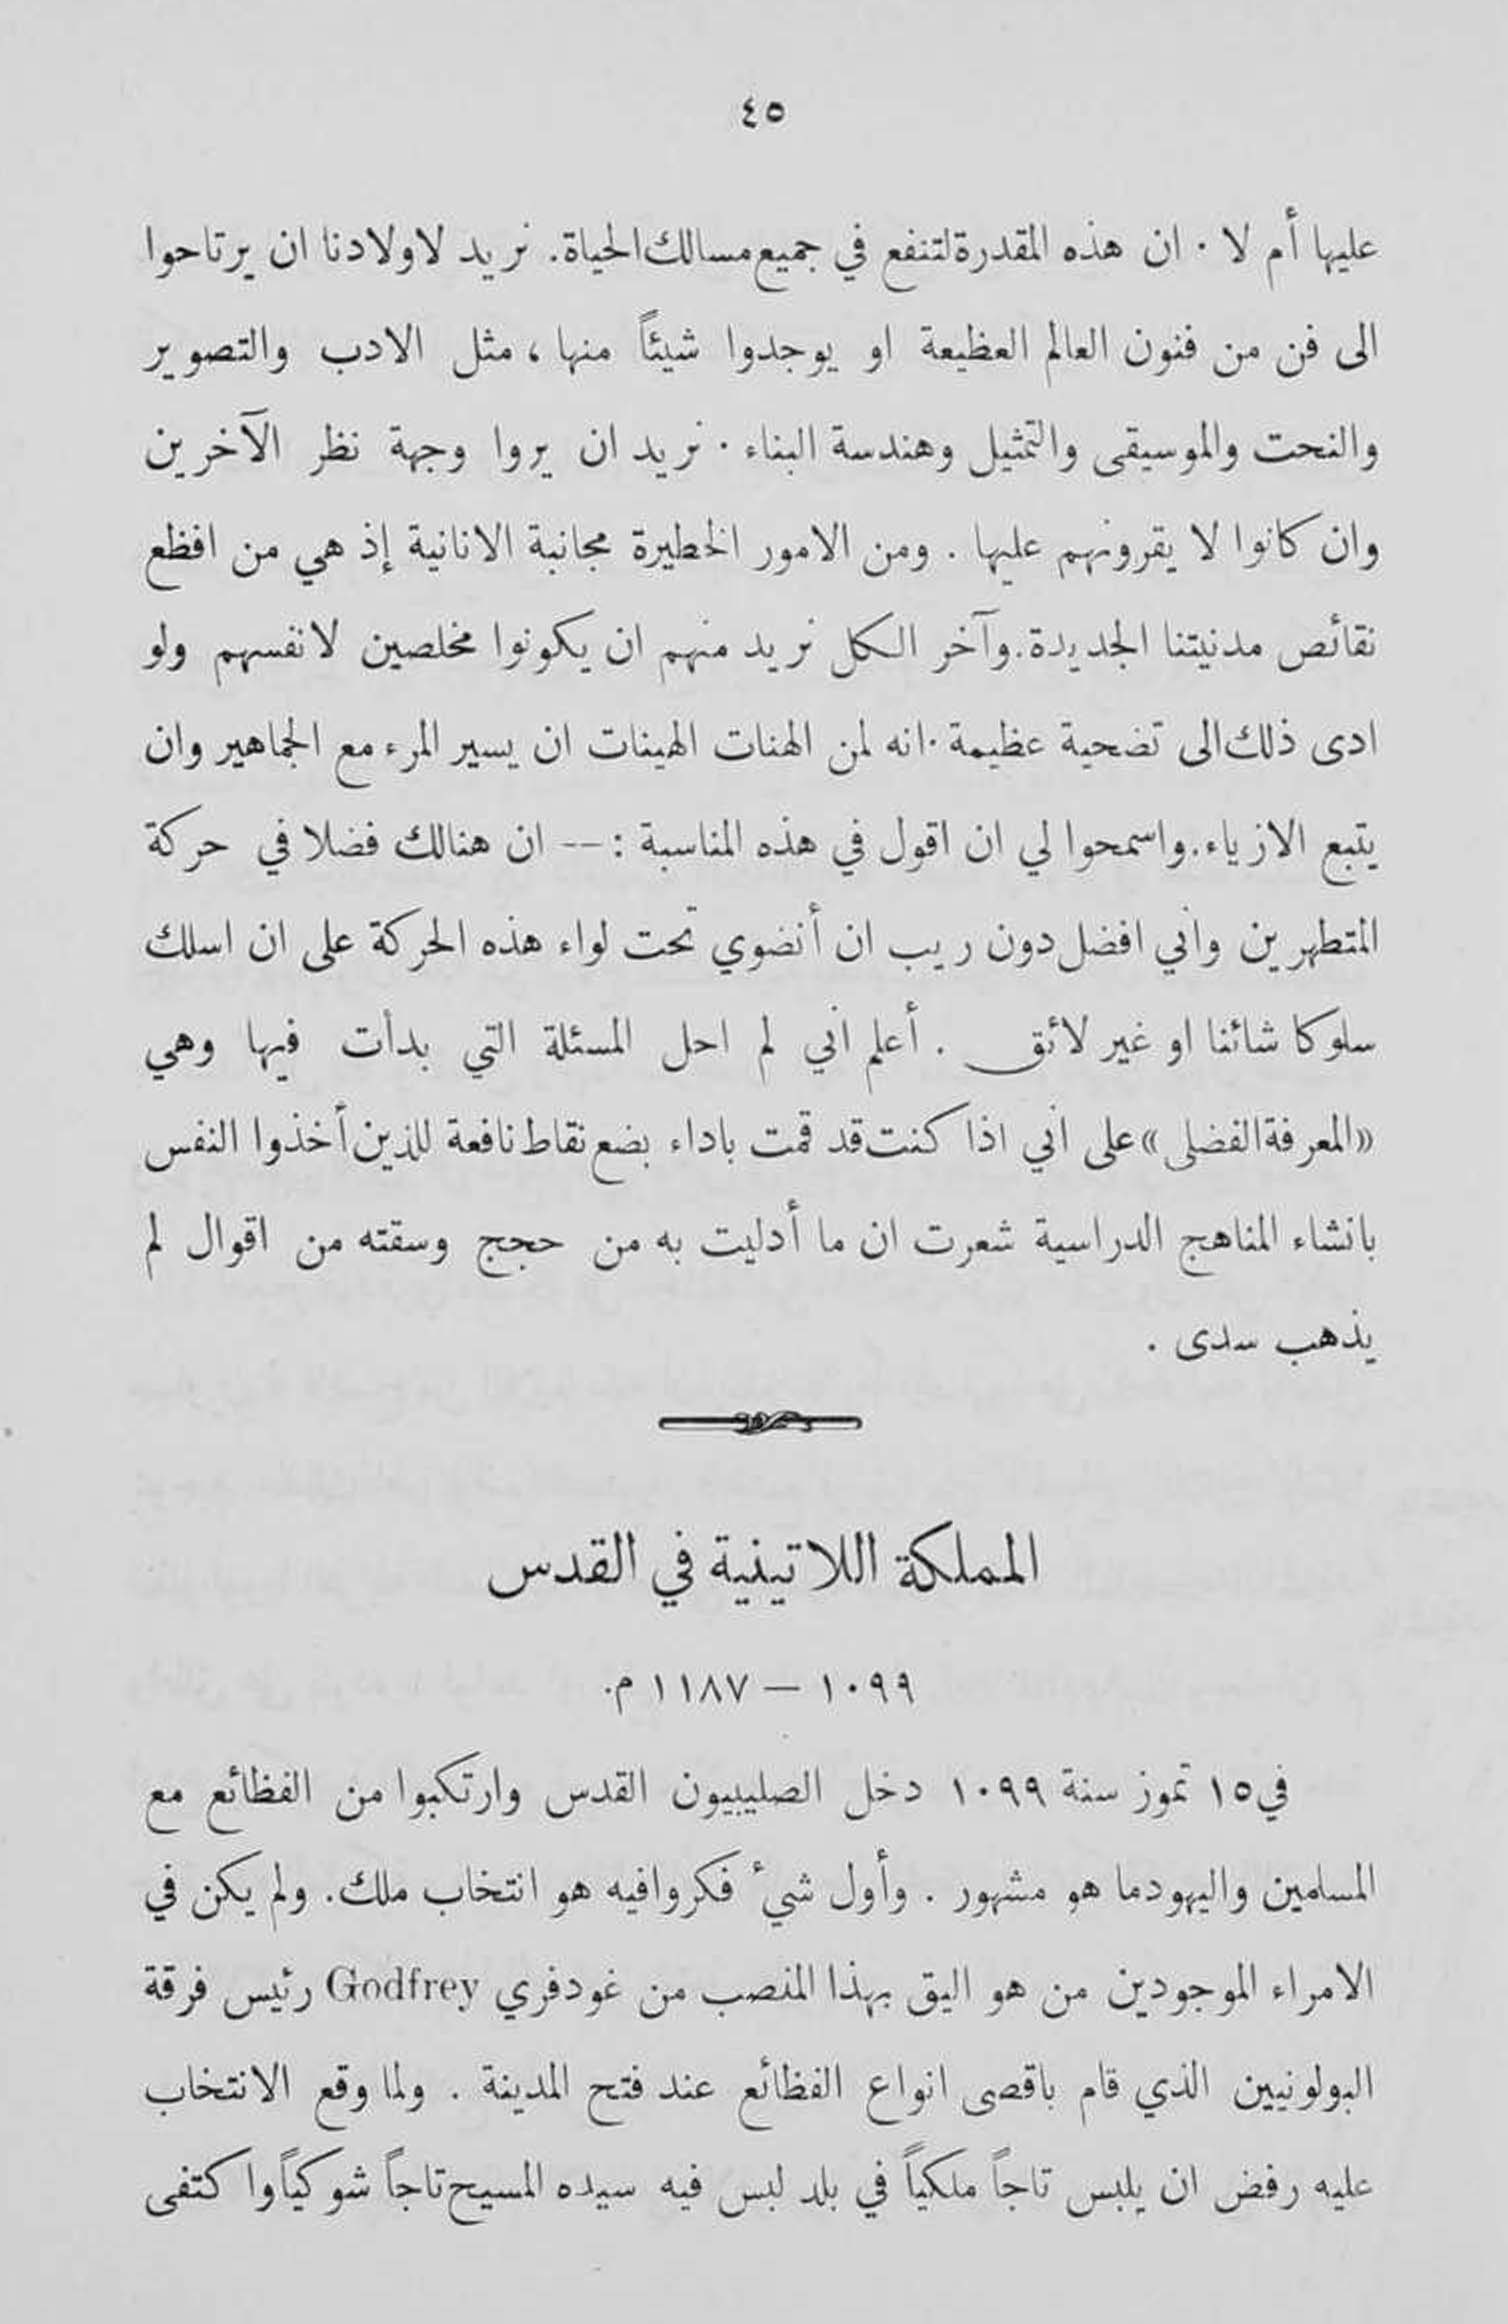 ٤٥
عليها أم لا . ان هذه المقدرة لتنفع في جميع مسالك الحياة . نريد لاولادنا ان يرتاحوا
الى فن من فنون العالم العظيمة او يوجدوا شيئاً منها ، مثل الادب والتصوير
والنحت والموسيقى والتمثيل وهندسة البناء . نريد ان يروا وجهة نظر الآخرين
وان كانوا لا يقرونهم عليها . ومن الامور الخطيرة مجانبة الانانية إذ هي من افظع
نقائص مدنيتنا الجديدة . وآخر الكل نريد منهم ان يكونوا مخلصين لانفسهم ولو
ادى ذلك الى تضحية عظيمة . انه لمن الهنات الهينات ان يسير المرء مع الجماهير وان
يتبع الازياء . واسمحوا لي ان اقول في هذه المناسبة : -- ان هنالك فضلا في حركة
المتطهرين واني افضل دون ريب ان أنضوي تحت لواء هذه الحركة على ان اسلك
سلوكا شائنا او غير لائق . أعلم اني لم احل المسئلة التي بدأت فيها وهي
«المعرفة الفضلى» على اني اذا كنت قد قمت باداء بضع نقاط نافعة للذين أخذوا النفس
بانشاء المناهج الدراسية شعرت ان ما أدليت به من حجج وسقته من اقوال لم
يذهب سدى .
المملكة اللاتينية في القدس
١٠٩٩ — ١١٨٧ م.
في ١٥ تموز سنة ١٠٩٩ دخل الصليبيون القدس وارتكبوا من الفظائع مع
المسلمين واليهود ما هو مشهور . وأول شيء فكروا فيه هو انتخاب ملك . ولم يكن في
الامراء الموجودين من هو اليق بهذا المنصب من غودفري Godfrey رئيس فرقة
البولونيين الذي قام باقصى انواع الفظائع عند فتح المدينة . ولما وقع الانتخاب
عليه رفض ان يلبس تاجاً ملكياً في بلد لبس فيه سيده المسيح تاجاً شوكياً واكتفى